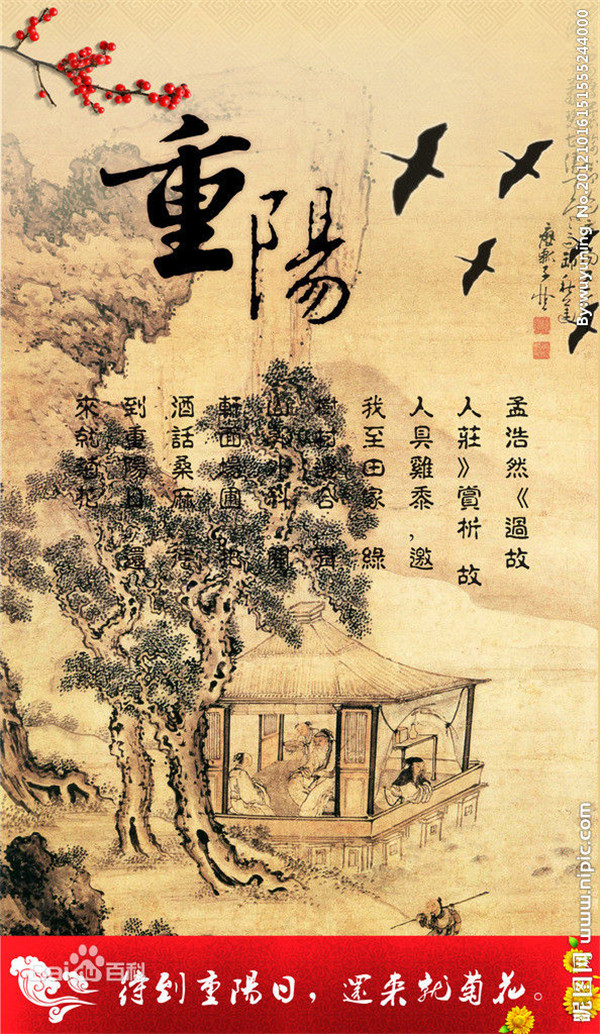 重陽
孟浩然《過故
人莊》賞析故
人具雞黍,邀
我至田家 綠
樹村邊合 青
山郭外斜 開
軒面場圃 把
酒話桑麻 待
到重陽日 還
來就菊花
待到重陽日，還来就菊花。
Bai百科
By:wuyuning No.20121016151555244000
昵图网 www.nipic.com